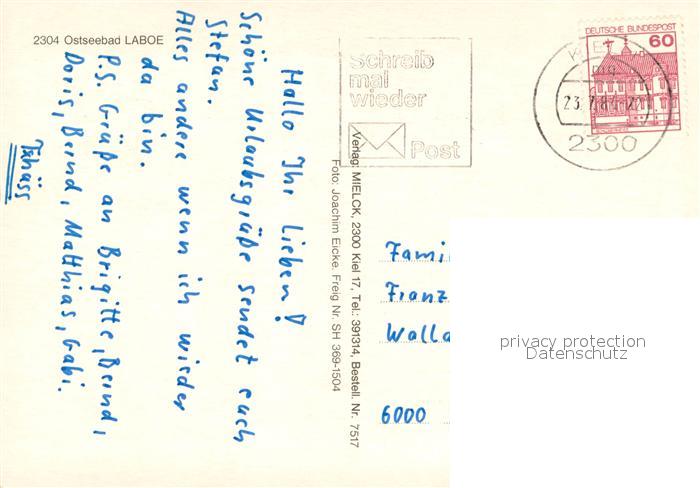 2304 Ostseebad LABOE
Hallo Ihr Lieben!
Schöne Urlaubsgrüße sendet euch
Stefan.
Alles andere wenn ich wieder
da bin.
P.S. Grüße an Brigitte, Bernd,
Doris, Bernd, Matthias, Gabi.
Tschüss
Verlag: MIELCK, 2300 Kiel 17, Tel.: 391314, Bestell. Nr. 7517
Foto: Joachim Eicke. Freig Nr. SH 369-1504
Schreib
mal
wieder
Post
DEUTSCHE BUNDESPOST
60
2300
Fami
Franz
Walla
6000
privacy protection
Datenschutz